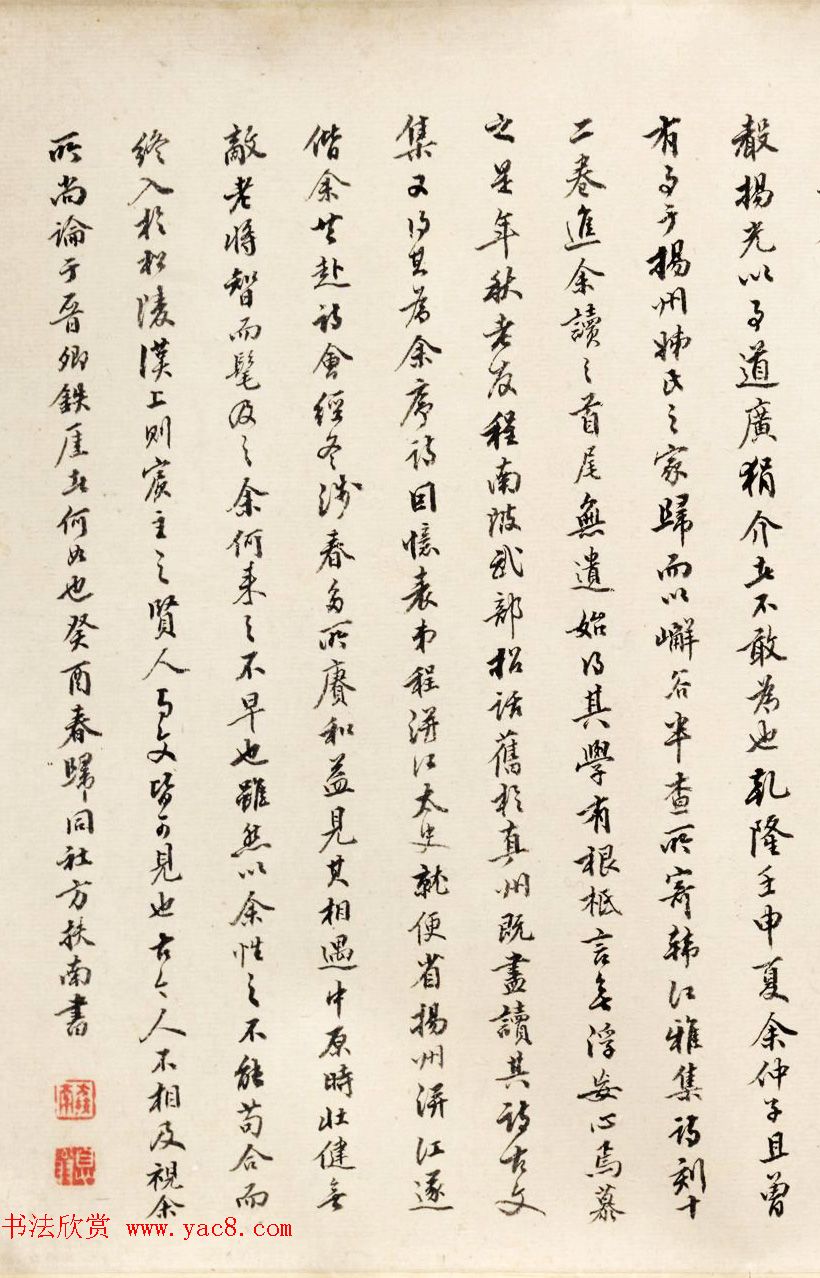 聲揚光以為道廣狷介者不敢為也乾隆壬申夏余仲子且曾
有事于揚州姊氏之家歸而以嶰谷半查所寄韩江雅集詩刻十
二卷進余讀之首尾無遺始得其學有根柢言無浮妄心焉慕
之是年秋老友程南陂武部招話舊於真州既盡讀其詩古文
集又得其為余序詩回憶表弟程洴江太史就便省揚州洴江遂
偕余共赴詩會經冬涉春多所賡和益見其相遇中原時壯健無
敵老將智而髦及之余何来之不早也雖然以余性之不能苟合而
終入於松陵漢上則賓主之賢人与文皆可見也古今人不相及視余
所尚論于晋卿鉄厓者何如也癸酉春歸同社方扶南書
书法欣赏 www.yac8.com